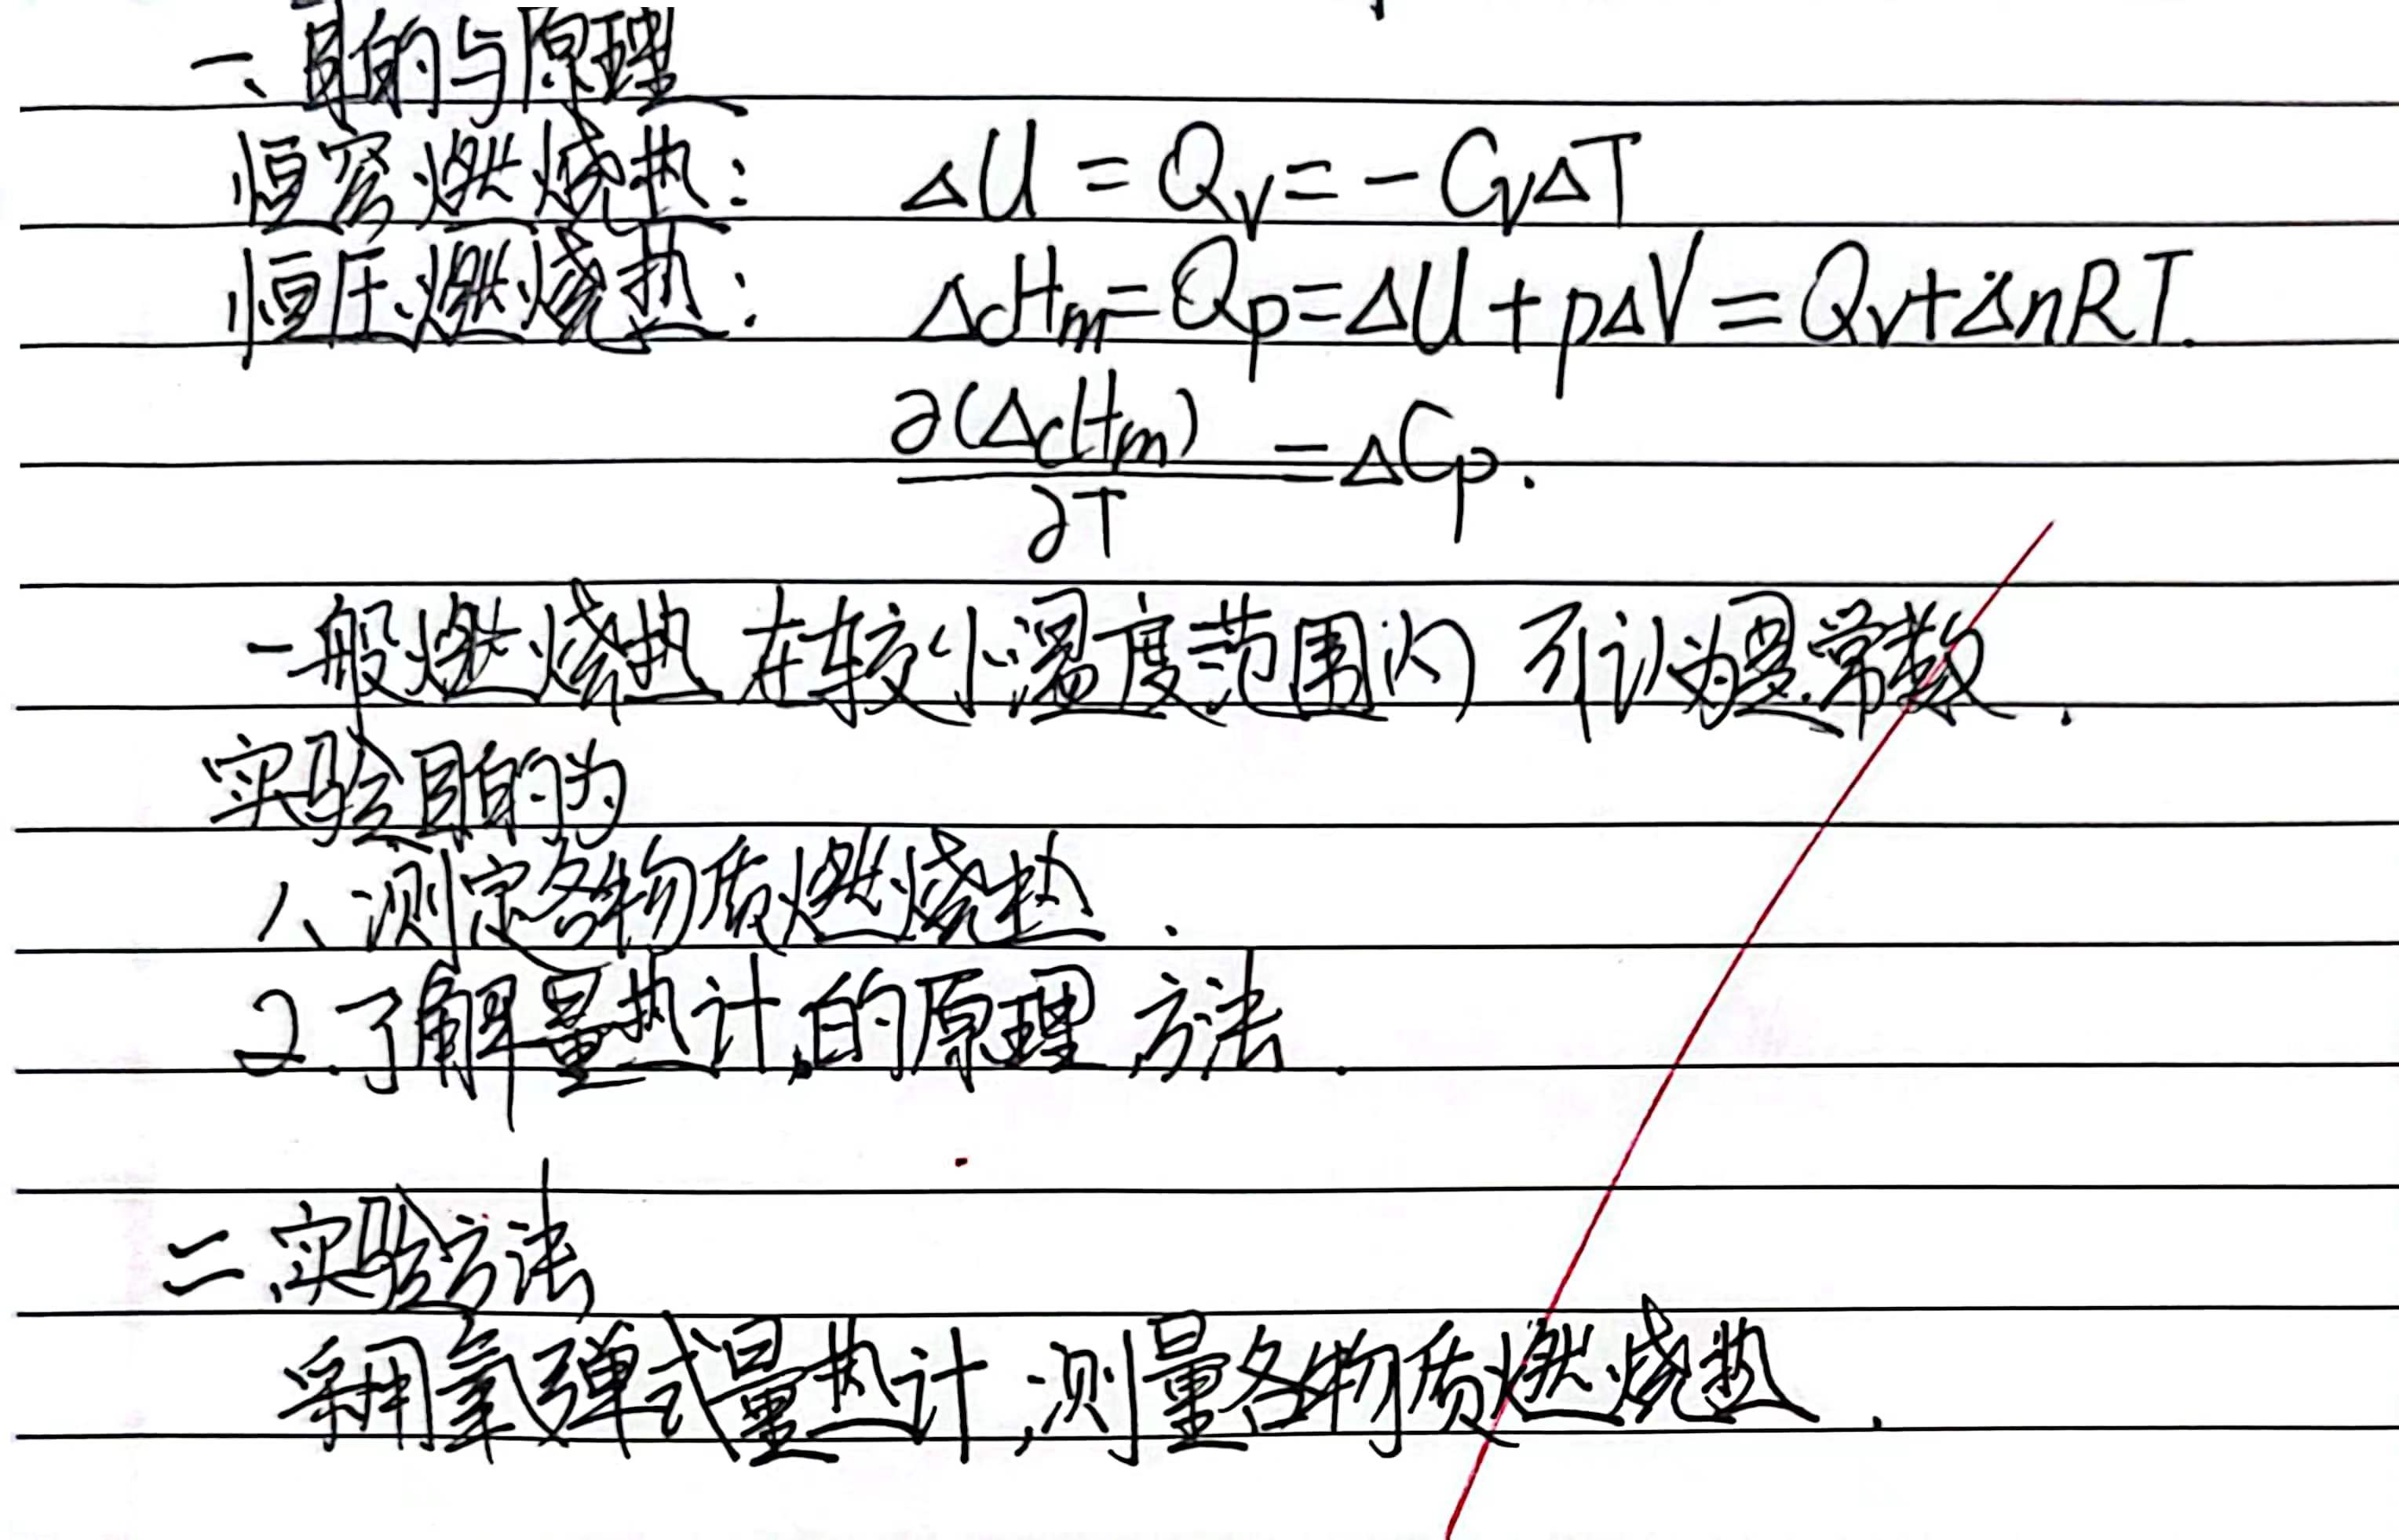 一、目的与原理
恒容燃烧热： ΔU = Qv = - CvΔT
恒压燃烧热： ΔcHm = Qp = ΔU + pΔV = Qv + ΔnRT.
∂(ΔcHm)
/∂T = ΔCp.
一般燃烧热 在较小温度范围内 可认为是常数.
实验目的为
1、测定各物质燃烧热.
2.了解量热计的原理 方法.
二、实验方法
采用氧弹式量热计,测量各物质燃烧热.